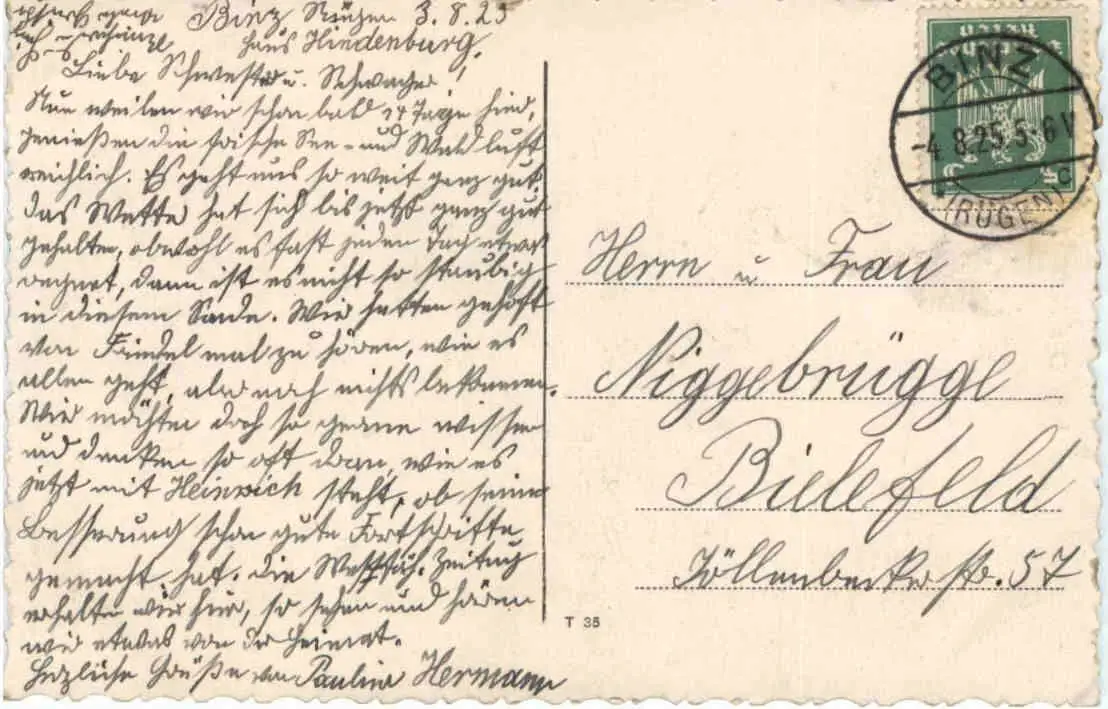 Binz Rügen 3.8.25
Haus Hindenburg.
Liebe Schwester u. Schwager,
Nun weilen wir schon bald 14 Tage hier,
genießen die frische See- und Waldluft
reichlich. Es geht uns so weit ganz gut,
das Wetter hat sich bis jetzt ganz gut
gehalten, obwohl es fast jeden Tag etwas
regnet, dann ist es nicht so staubig
in diesem Sande. Wir hatten gehofft
von Friedel mal zu hören, wie es
allen geht, aber noch nichts bekommen.
Wir möchten doch so gerne wissen
und denken so oft dran, wie es
jetzt mit Heinrich steht, ob seine
Besserung schon gute Fortschritte
gemacht hat. Die Westfäh. Zeitung
erhalten wir hier, so sehen und hören
wir etwas von der Heimat.
Herzliche Grüße von Pauline Hermann
BINZ
-4.8.25.5-6V
(RÜGEN) c
Herrn u Frau
Niggebrügge
Bielefeld
Jöllenbeckerstr. 57
T 35